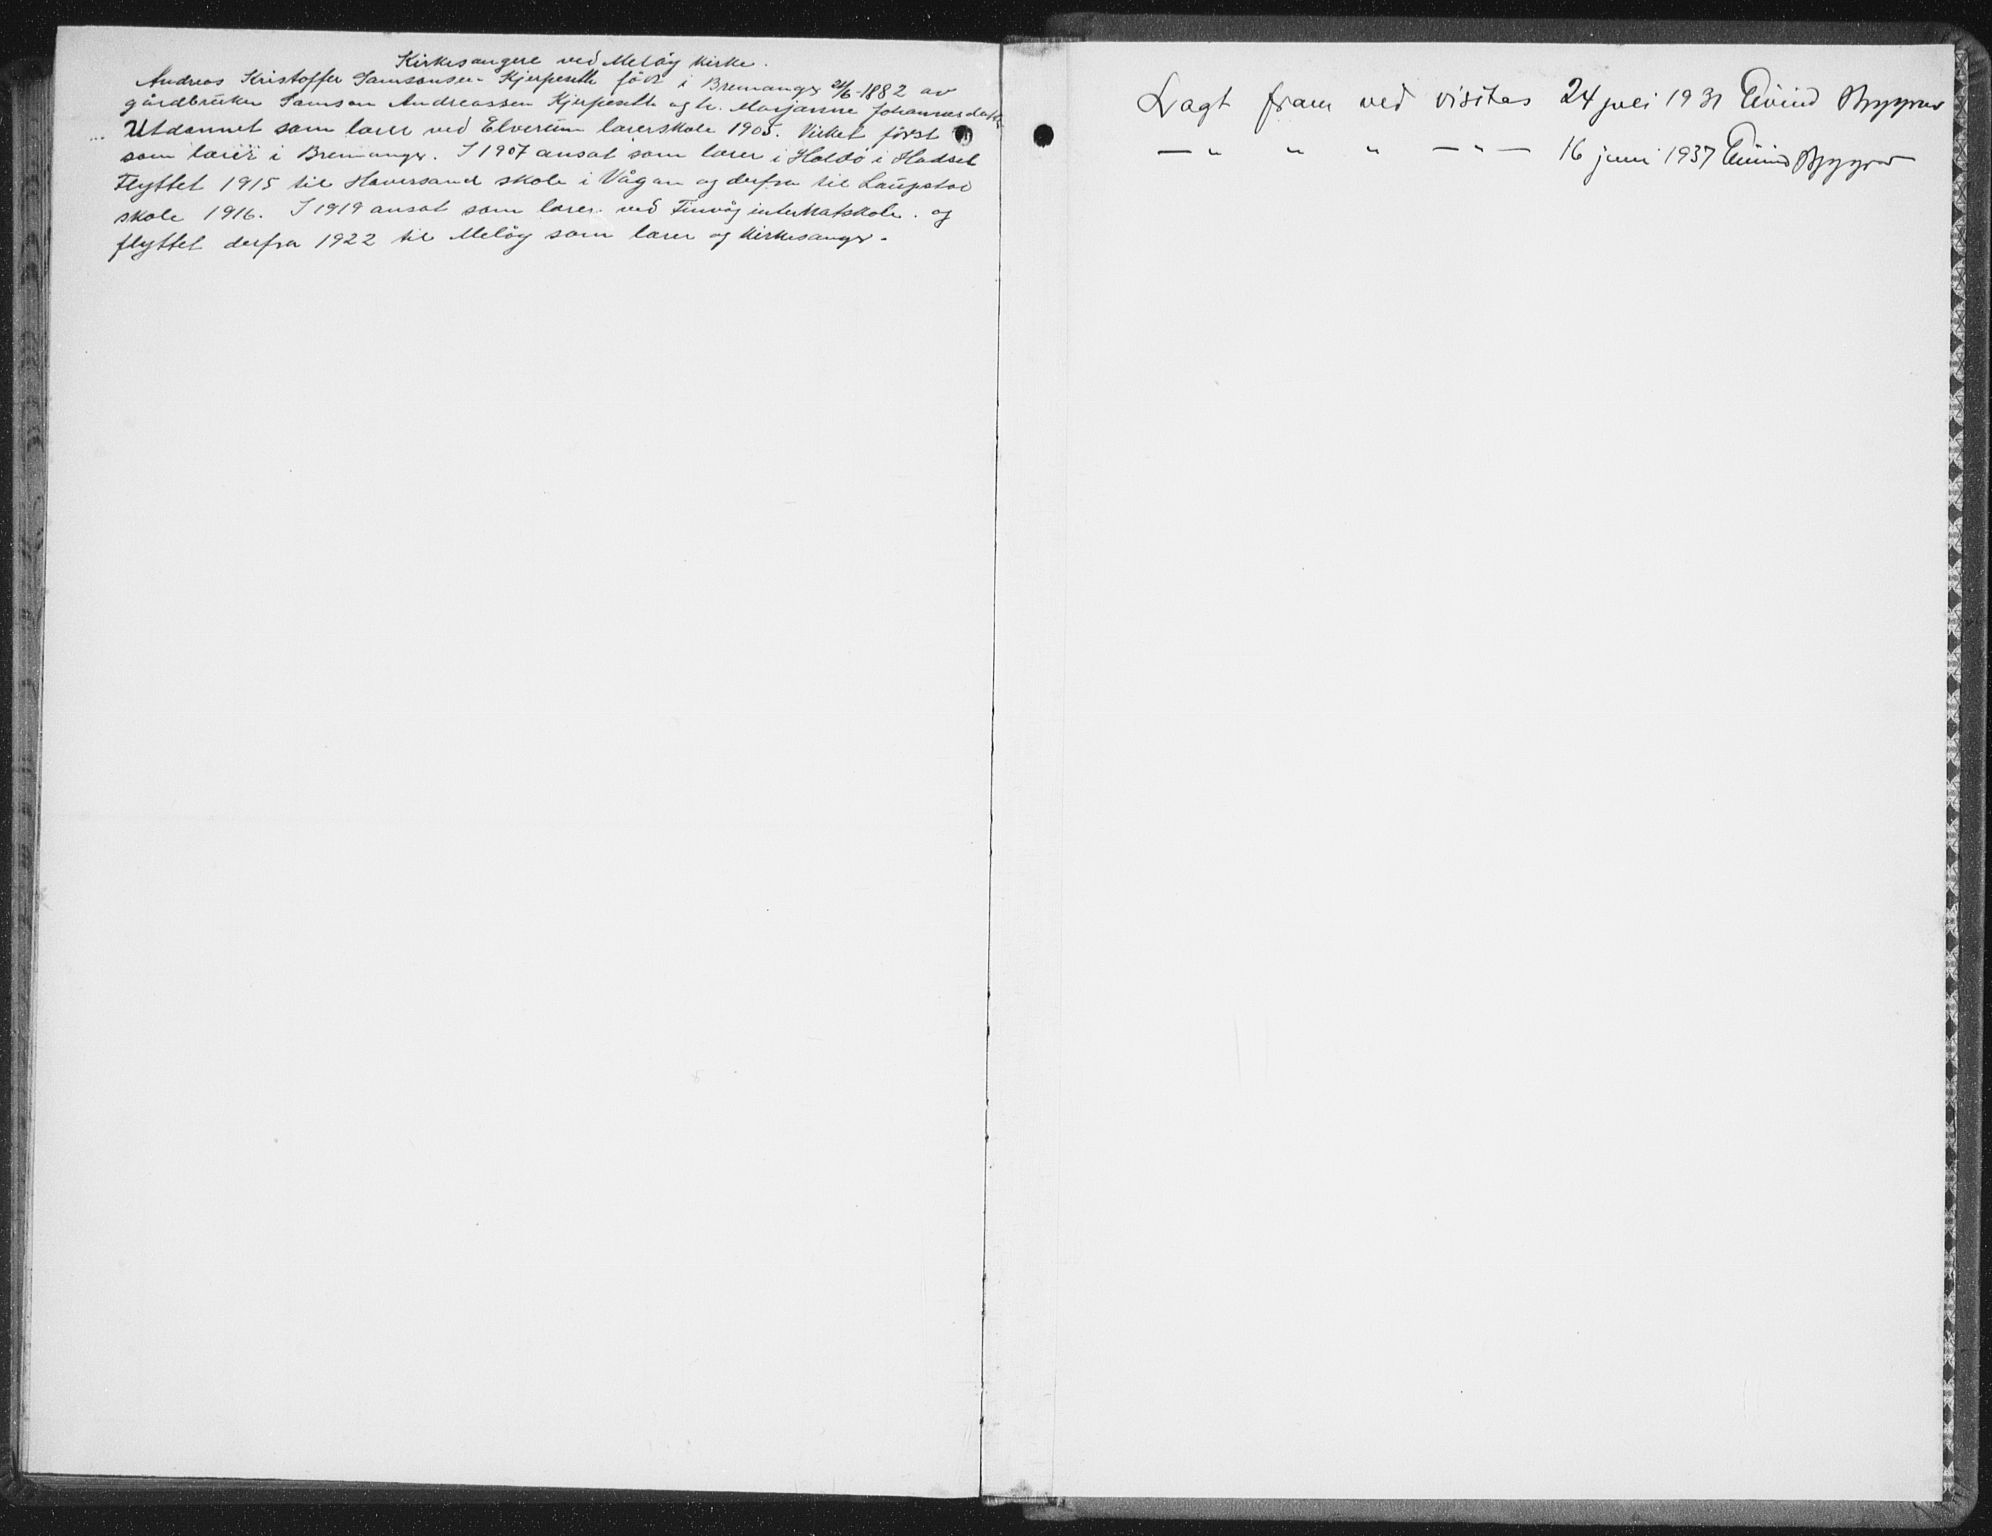 Kirkesangere ved Meløy kirke.
Andreas Kristoffer Samsonsen Kjerpeseth født i Bremanger 21/6-1882 av
gårdbruker Samson Andreassen Kjerpeseth og h. Marjanne Johannesdatter
Utdannet som lærer ved Elverum lærerskole 1905. Virket først
som lærer i Bremanger. I 1907 ansat som lærer i Holdø i Hadsel
Flyttet 1915 til skole i Vågan og derfra til Laupstad
skole 1916. I 1919 ansat som lærer ved Finvåg internatskole. og
flyttet derfra 1922 til Meløy som lærer og kirkesanger.
Lagt fram ved visitas 24 juli 1931 Eivind Berggrav
— " " " — " — 16 juni 1937 Eivind Berggrav